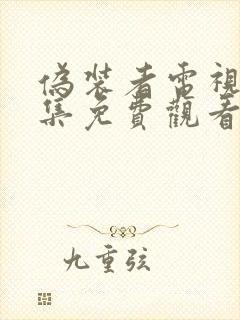 偽裝者電視
集免費觀看
九重弦